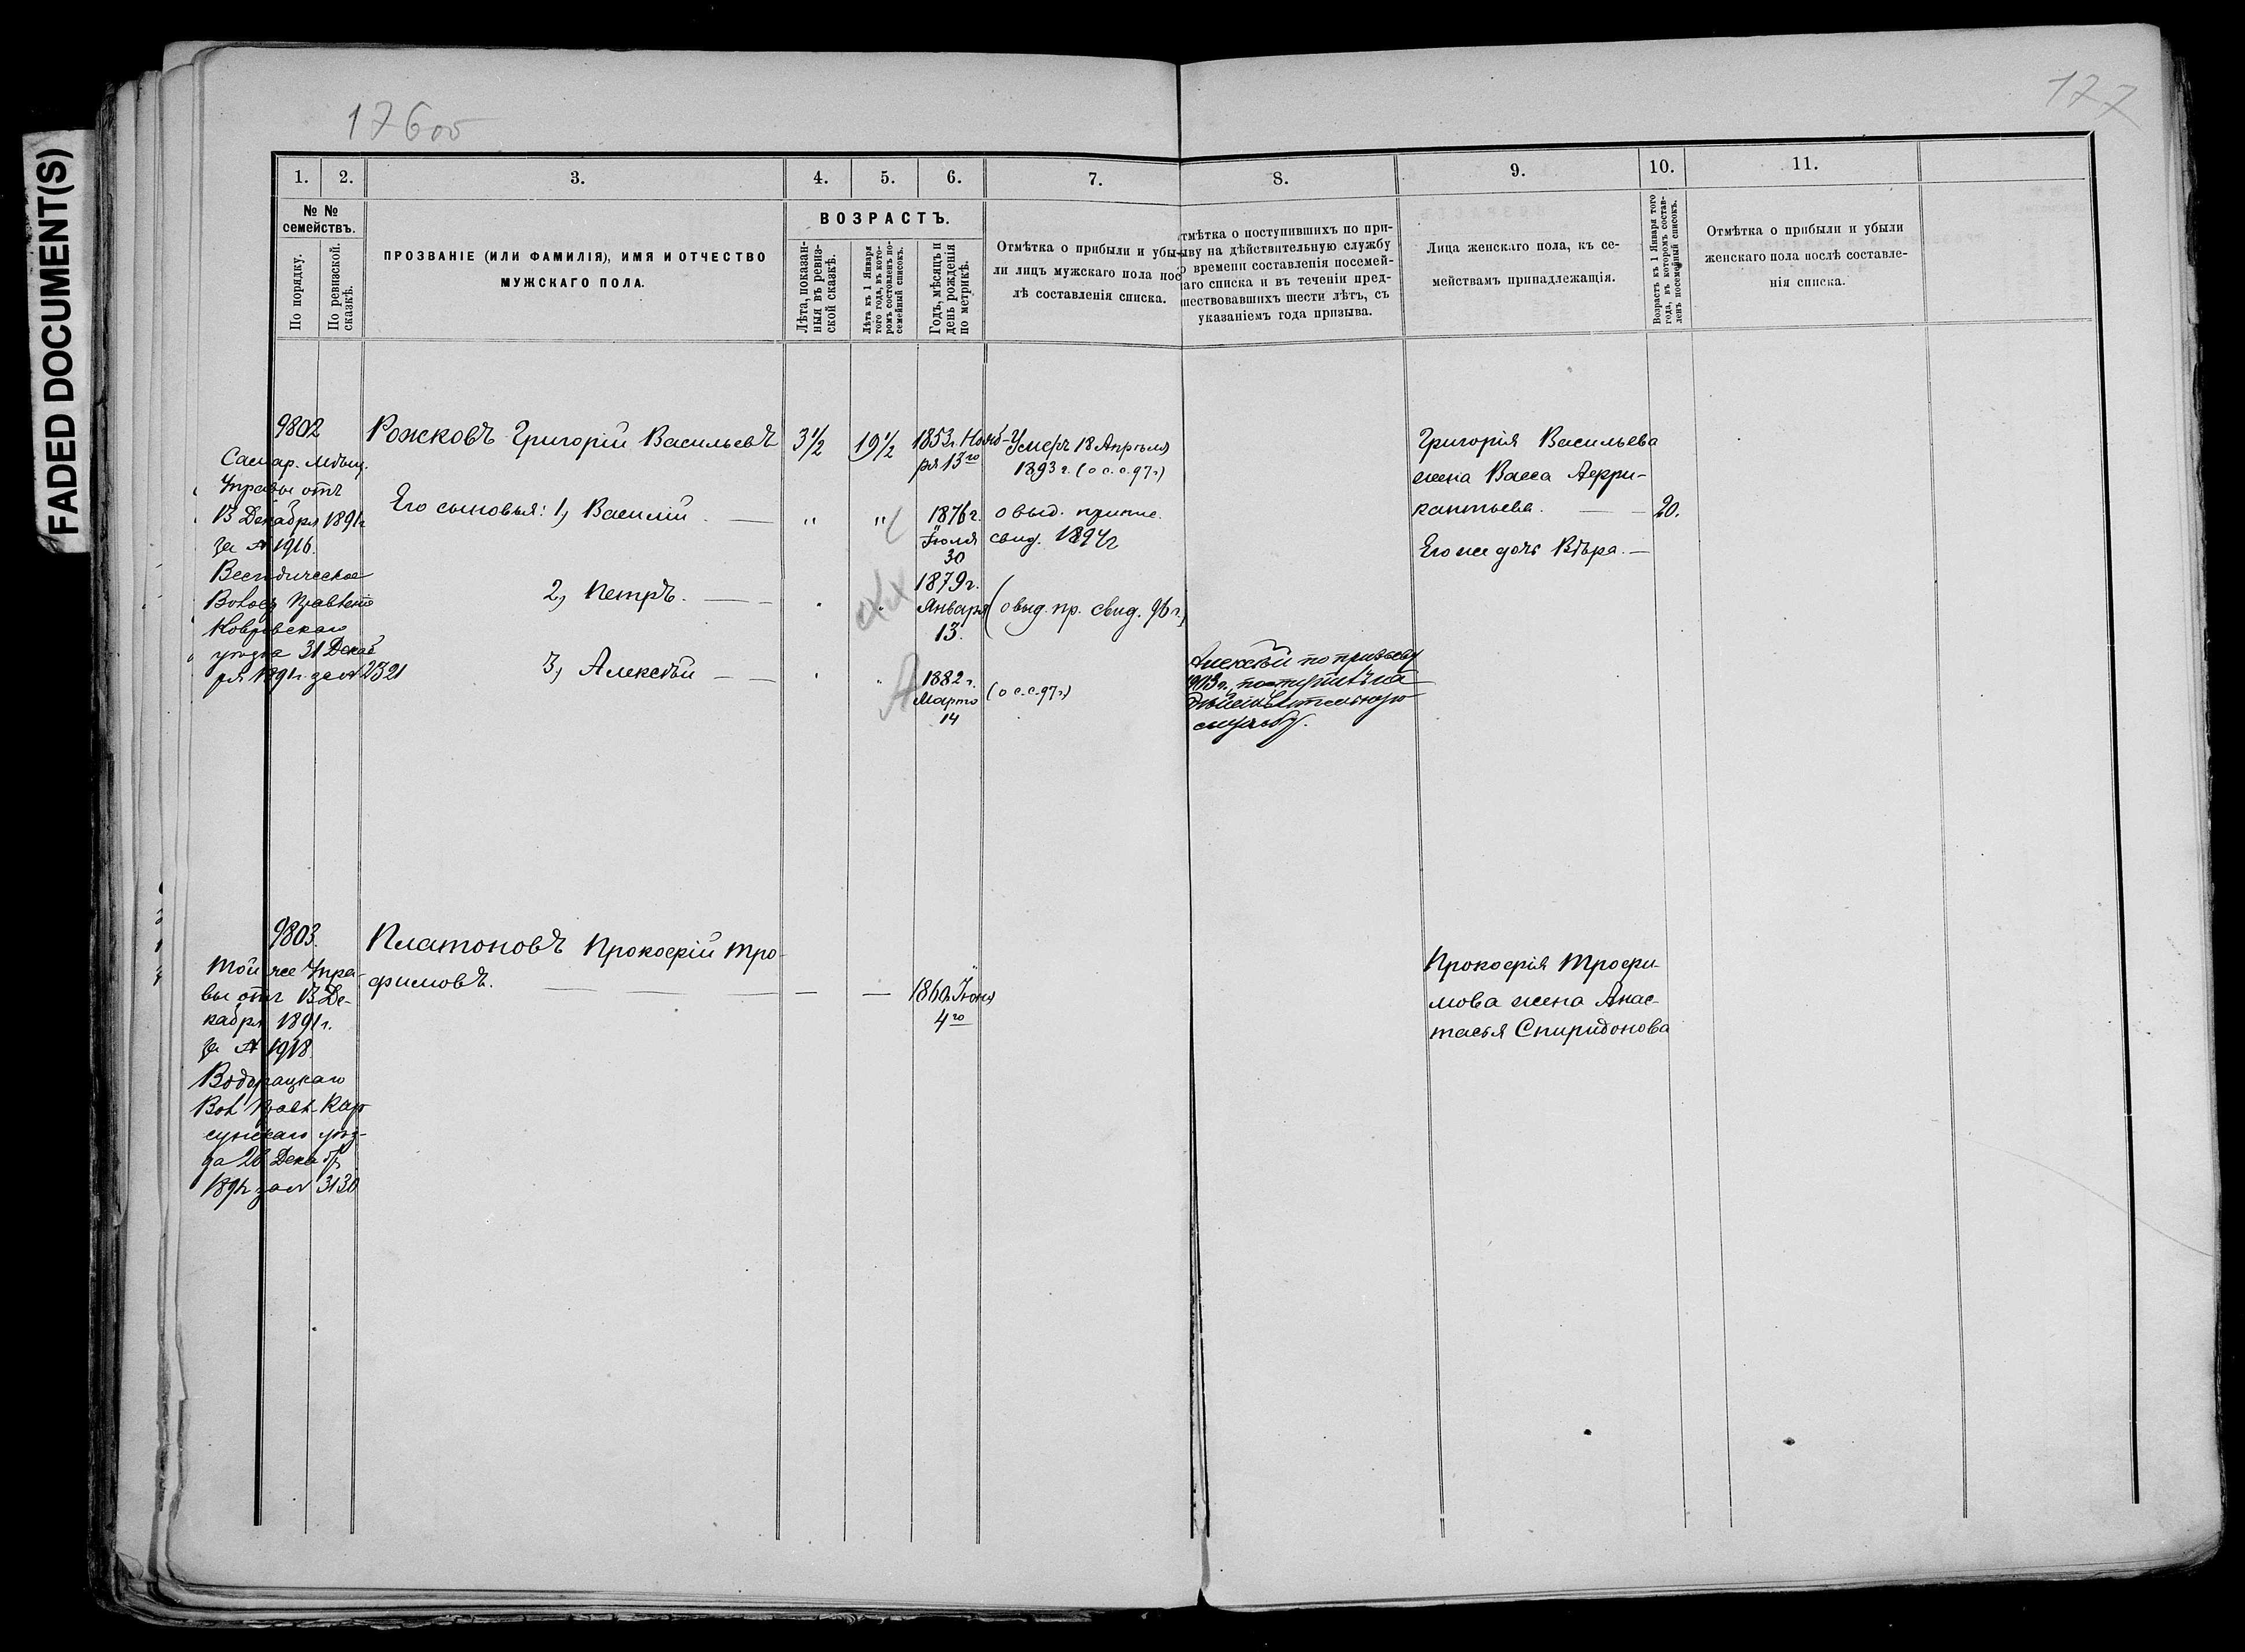 FADED DOCUMENT(S)
176об
177
1. 2. 3. 4. 5. 6. 7. 8. 9. 10. 11.
№ №
семействъ.
По порядку.
По ревизской
сказкѣ.
ПРОЗВАНІЕ (ИЛИ ФАМИЛІЯ), ИМЯ И ОТЧЕСТВО
МУЖСКАГО ПОЛА.
ВОЗРАСТЪ.
Лѣта, показан-
ныя въ ревиз-
ской сказкѣ.
Лѣта къ 1 Января
того года, въ кото-
ромъ составленъ по-
семейный списокъ.
Годъ, мѣсяцъ и
день рожденія
по метрикѣ.
Отмѣтка о прибыли и убы-
ли лицъ мужскаго пола пос
лѣ составленія списка.
тмѣтка о поступившихъ по при-
ыву на дѣйствительную службу
о времени составленія посемей-
аго списка и въ теченіи пред-
шествовавшихъ шести лѣтъ, съ
указаніемъ года призыва.
Лица женскаго пола, къ се-
мействамъ принадлежащія.
Возрастъ къ 1 Января того
года, въ которомъ состав-
ленъ посемейный списокъ.
Отмѣтка о прибыли и убыли
женскаго пола послѣ составле-
нія списка.
9802
Самар. Мѣщ.
Управы отъ
13 Декабря 1891г
за № 1916.
Волос. Правленіе
Ковровскаго
уѣзда 31 Декаб
ря 1891г. за № 2321
Рожковъ Григорій Васильевъ
3½
19½
1853г. Нояб-
ря 13го
Умеръ 18 Апрѣля
1893 г. (о с. с. 97г)
Его сыновья: 1, Василій. —
" "
1876г.
Іюля
30
о выд. припис.
свид. 1897г
2, Петръ. —
1879г.
Января
13.
(о выд. пр. свид. 96г.)
3, Алексѣй —
1882г.
Марта
14
(о с. с. 97г)
Алексѣй по призыву
1903г. поступилъ на
дѣйствительную
службу.
Григорія Васильева
жена Васса Ферри-
кантьева. — 20.
Его же дочь Вѣра. —
9803.
Той же Упра-
вы отъ 13 Де-
кабря 1891г.
за № 1918.
Вол. Правл. Кар-
сунскаго уѣз-
да 26 Декабр
1891г за № 3130
Платоновъ Прокофій Тро-
фимовъ. — — —
1860г. Іюня
4го
Прокофія Трофи-
мова жена Анас-
тасья Спиридонова